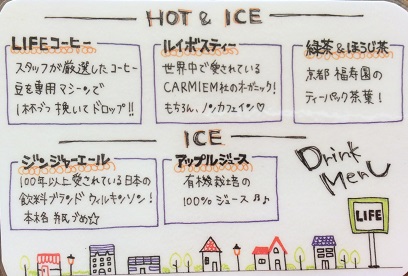 HOT & ICE
LIFEコーヒー
スタッフが厳選したコーヒー
豆を専用マシーンで
1杯づつ挽いてドロップ!!
ルイボスティー
世界中で愛されている
CARMIEM社のオーガニック!
もちろん、ノンカフェイン♡
緑茶&ほうじ茶
京都 福寿園の
ティーパック茶葉!
ICE
ジンジャーエール
100年以上愛されている日本の
飲料ブランド ウィルキンソン!
本格 瓶づめ☆
アップルジュース
有機栽培の
100%ジュース♫♪
Drink
Menu
LIFE